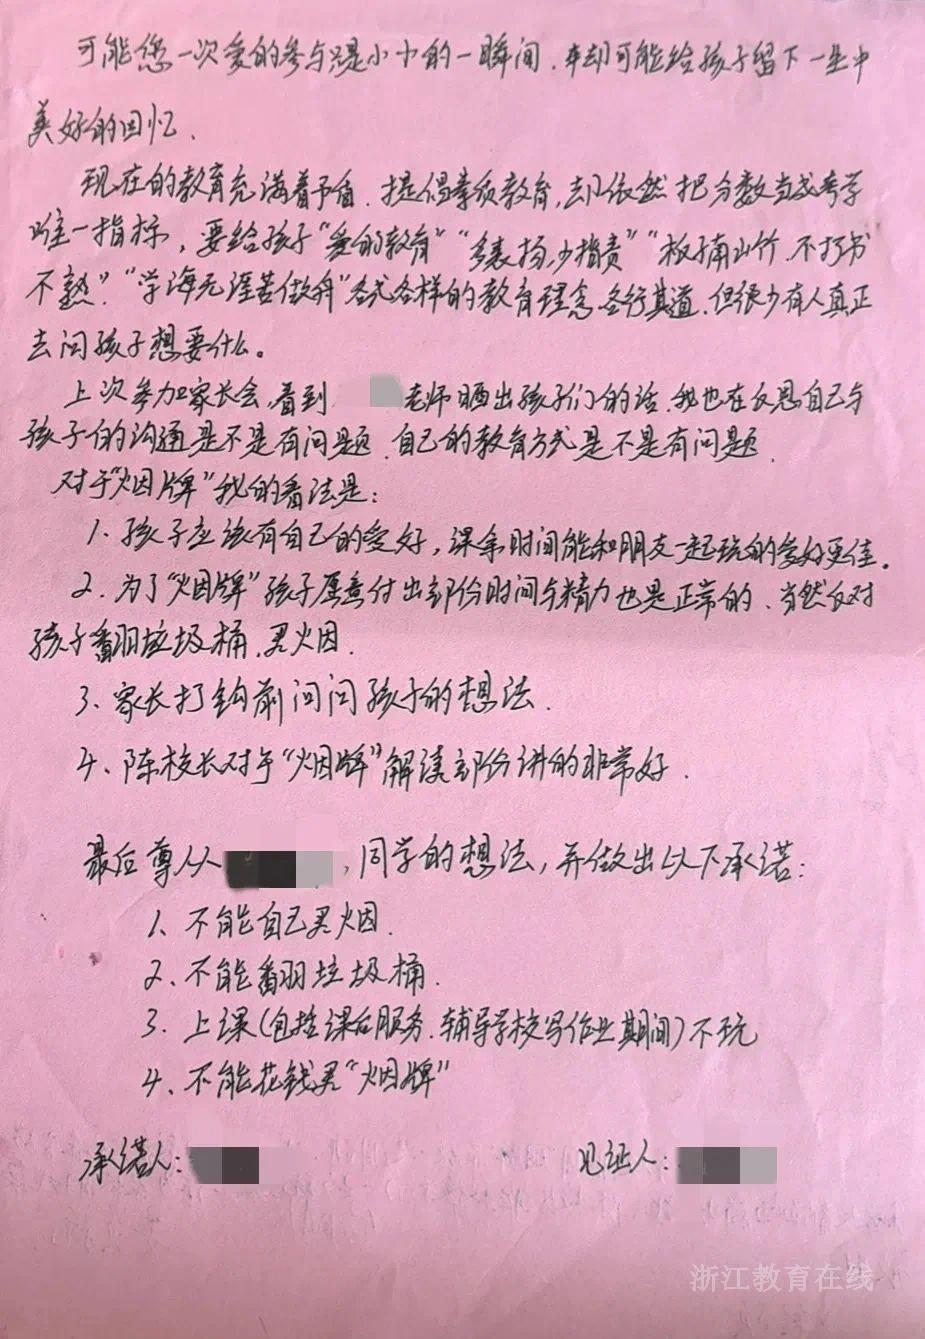 可能您一次爱的参与只是小小的一瞬间,车却可能给孩子留下一生中
美好的回忆.
现在的教育充满着予盾.提倡素质教育,却依然把分数当成考学
唯一指标,要给孩子“爱的教育”“多表扬,少指责”“板子南山竹.不打书
不熟”.“学海无涯苦做舟”各式各样的教育理念各行其道.但很少有人真正
去问孩子想要什么。
上次参加家长会,看到 老师晒出孩子们的话.我也在反思自己与
孩子的沟通是不是有问题.自己的教育方式是不是有问题.
对于“烟牌”我的看法是:
1.孩子应该有自己的爱好,课余时间能和朋友一起玩的爱好更佳。
2.为了“烟牌”孩子愿意付出部份时间与精力也是正常的、当然反对
孩子翻垃圾桶.买烟.
3、家长打钩前问问孩子的想法.
4、陈校长对于“烟牌”解读部份讲的非常好.
最后尊从 ,同学的想法,并做出以下承诺:
1、不能自己买烟.
2、不能翻垃圾桶.
3.上课(包括课后服务.辅导学校写作业期间)不玩
4、不能花钱买“烟牌”
承诺人: 见证人:
浙江教育在线